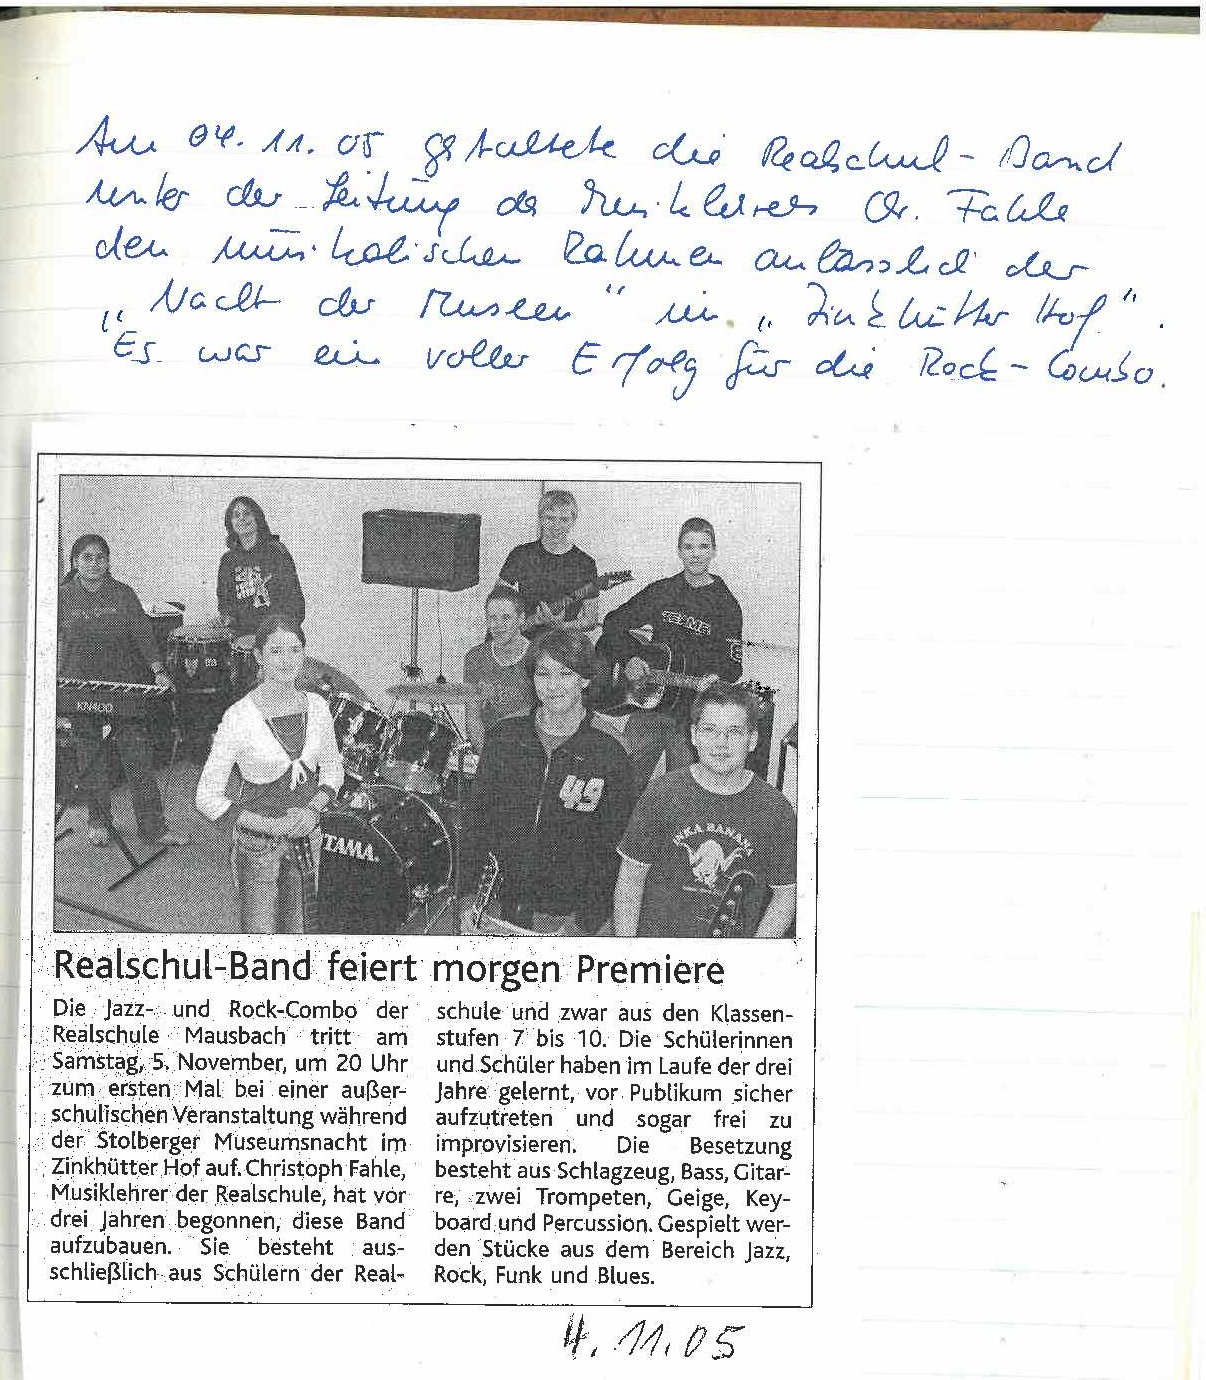 Am 04.11.05 gestaltete die Realschul-Band
unter der Leitung des Musiklehrers Chr. Fahle
den musikalischen Rahmen anlässlich der
„Nacht der Museen" im „Zinkhütter Hof".
Es war ein voller Erfolg für die Rock-Combo.
KN400
TEAMP
49
TAMA.
INKA BANANA
Realschul-Band feiert morgen Premiere
Die Jazz- und Rock-Combo der
Realschule Mausbach tritt am
Samstag, 5. November, um 20 Uhr
zum ersten Mal bei einer außer-
schulischen Veranstaltung während
der Stolberger Museumsnacht im
Zinkhütter Hof auf. Christoph Fahle,
Musiklehrer der Realschule, hat vor
drei Jahren begonnen, diese Band
aufzubauen. Sie besteht aus-
schließlich aus Schülern der Real-
schule und zwar aus den Klassen-
stufen 7 bis 10. Die Schülerinnen
und Schüler haben im Laufe der drei
Jahre gelernt, vor Publikum sicher
aufzutreten und sogar frei zu
improvisieren. Die Besetzung
besteht aus Schlagzeug, Bass, Gitar-
re, zwei Trompeten, Geige, Key-
board und Percussion. Gespielt wer-
den Stücke aus dem Bereich Jazz,
Rock, Funk und Blues.
4.11.05